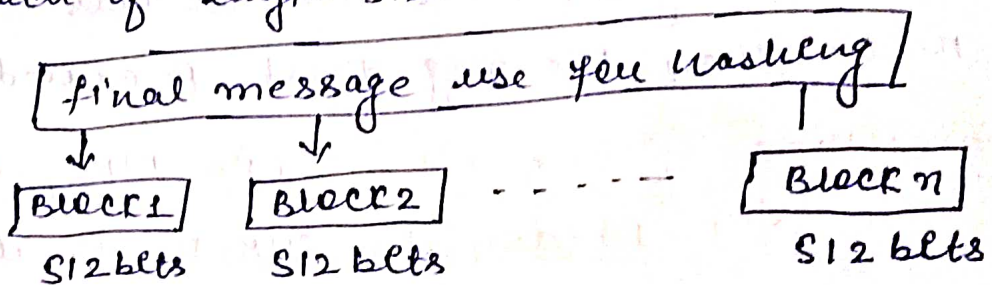 final message use for hashing
Block 1 Block 2 ------ Block n
512 bits 512 bits 512 bits